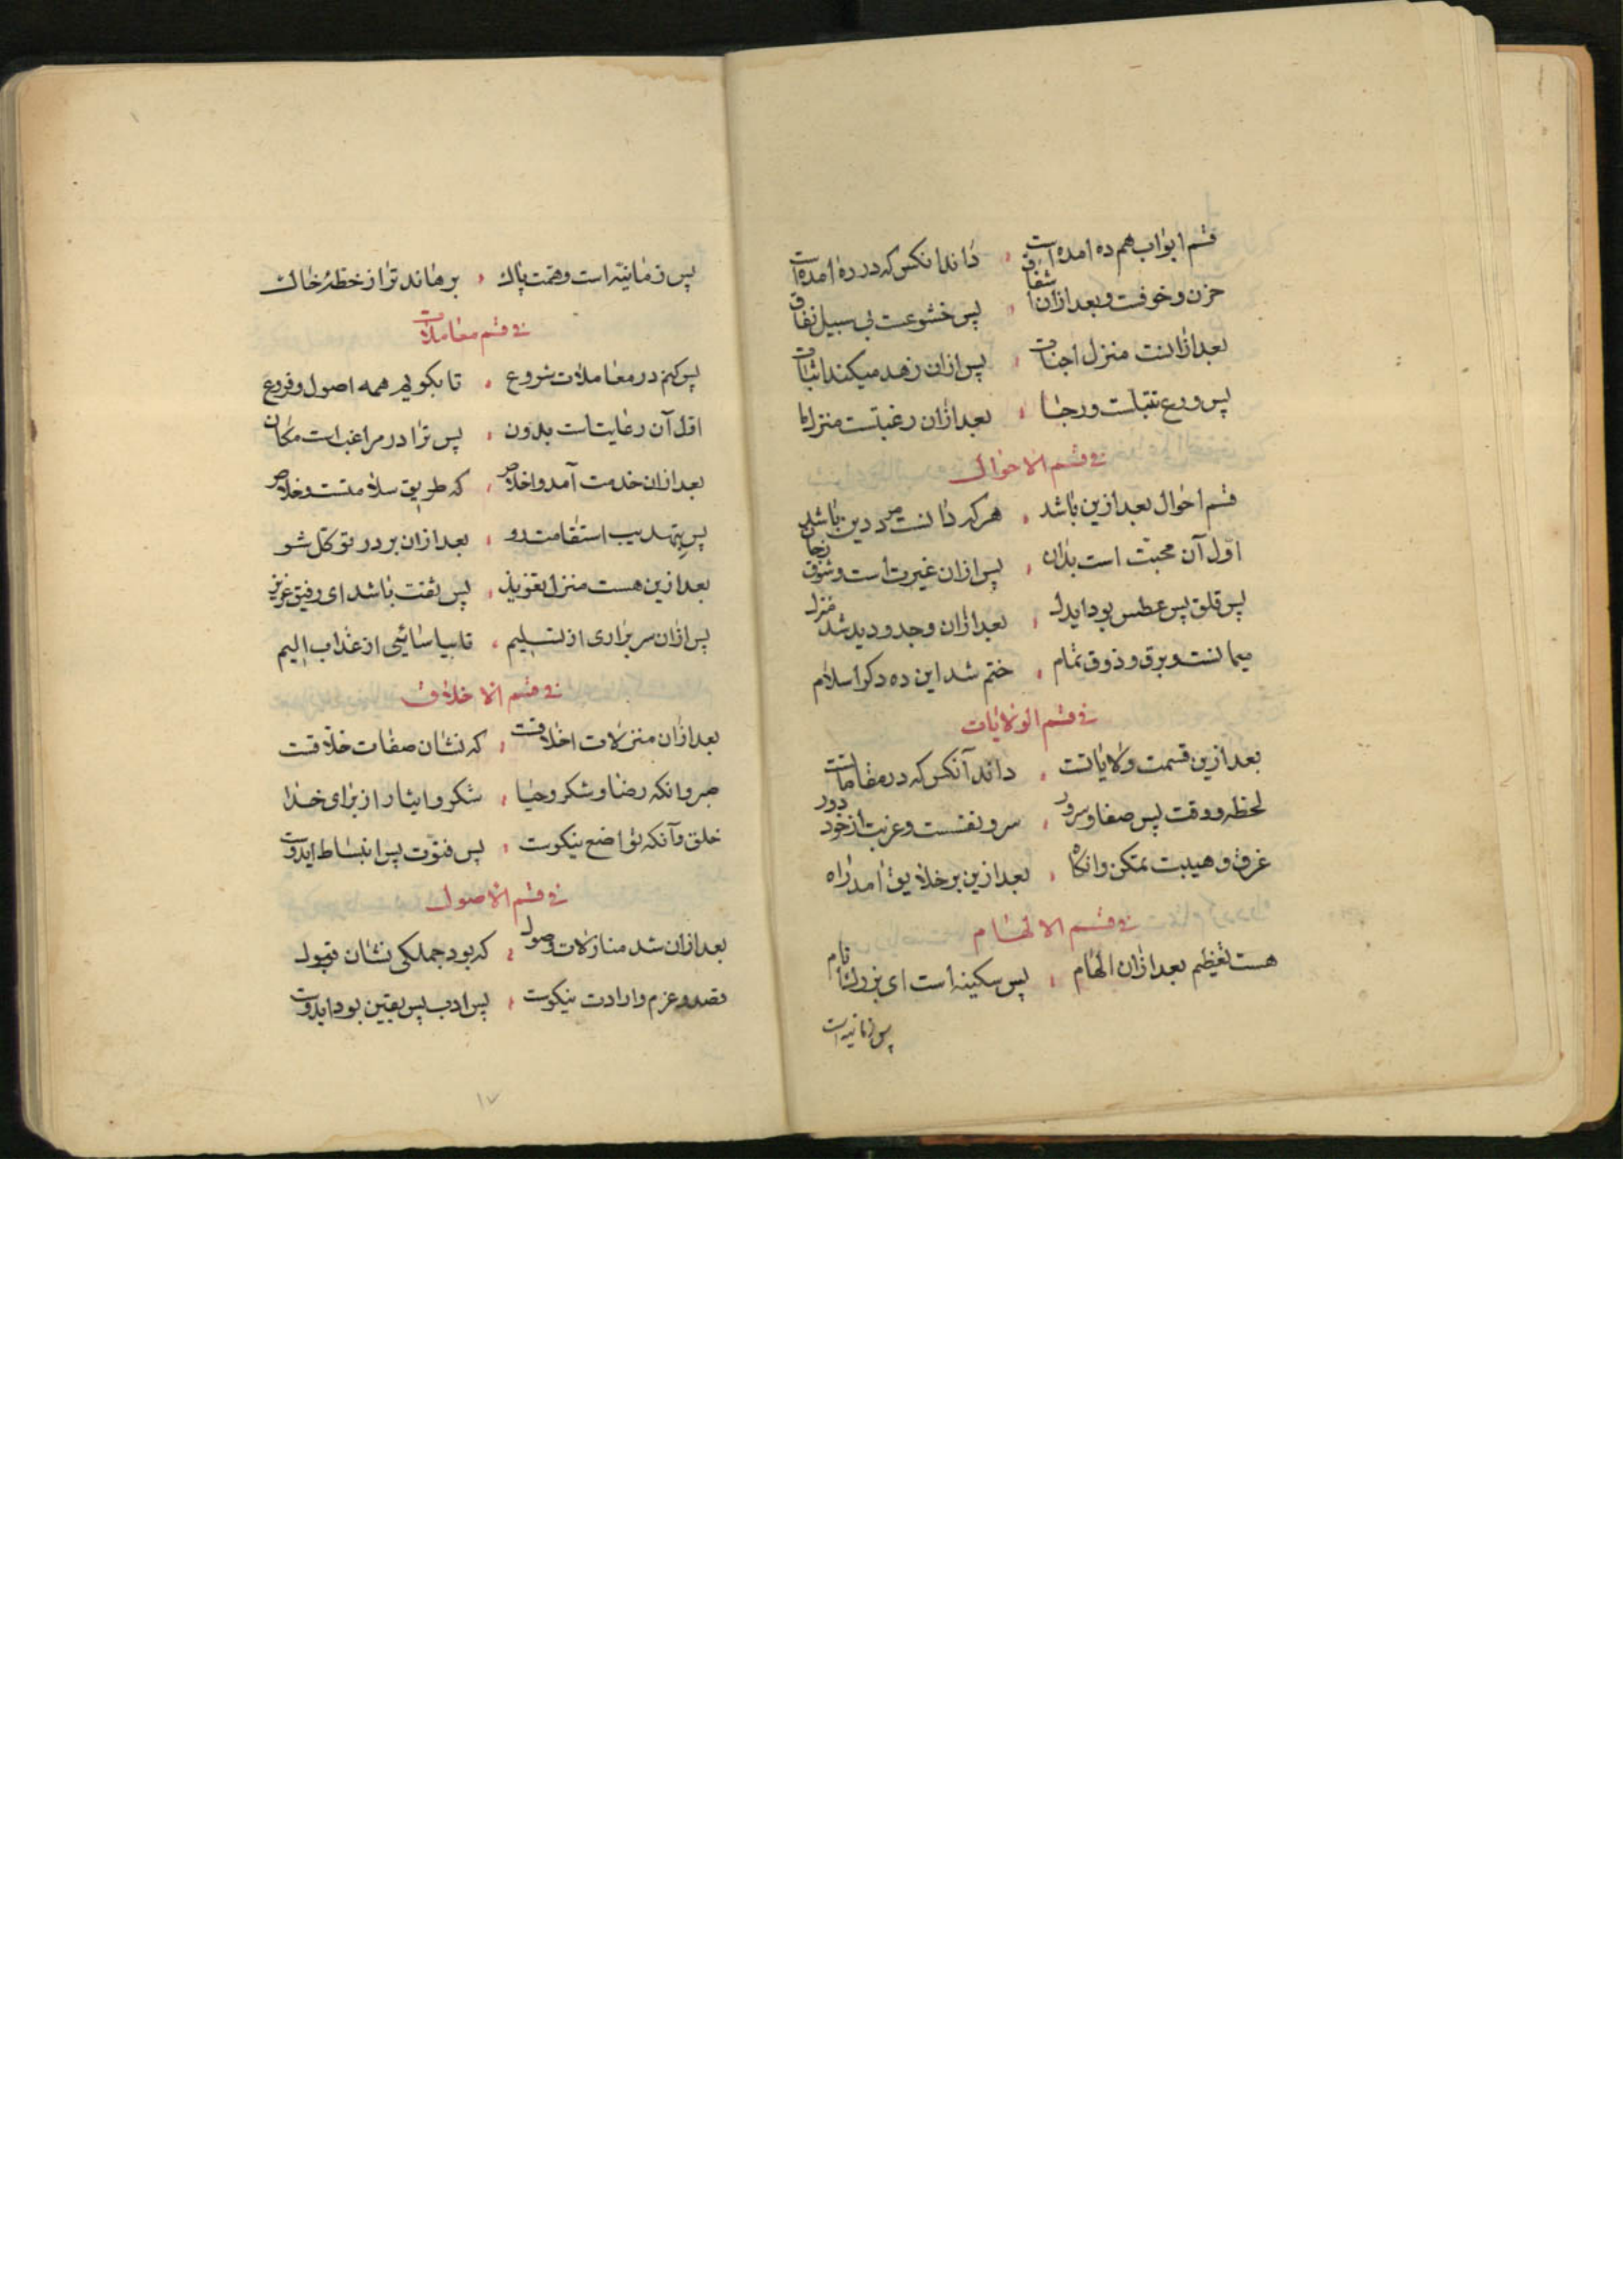 قسم ابواب هم ده امده است ، داند انکس که در ره امده است
حزن و خوفت و بعد ازان اشفاق ، پس خشوعت بی سبیل نفاق
بعد ازانست منزل اجنات ، پس ازان زهد میکند اثبات
پس ورع تبتلست و رجا ، بعد ازان رغبتست منزل ما
فی قسم الاحوال
قسم احوال بعد ازین باشد ، هر که دانست مرد دین باشد
اول آن محبّت است بدان ، پس ازان غیرت است و شوق
پس قلق پس عطس بود ایدل ، بعد ازان وجد و دید شد منزل
هیمانست و برق و ذوق تمام ، ختم شد این ده دکر اسلام
فی قسم الولایات
بعد ازین قسمت ولایاتست ، داند آنکس که در مقاماتست
لحظه و وقت پس صفا و سرور ، سر و نفسست و غربت از خود دور
غرق و هیبت تمکن وانکاه ، بعد ازین بر خلایق امد راه
فی قسم الالهام
هست تعظیم بعد ازان الهام ، پس سکینه است ای بزرك نام
پس زمانیه است
پس زمانیّه است و همت پاك ، برهاند ترا از خطهٔ خاك
فی قسم معاملات
پس کنم در معاملات شروع ، تا بکویم همه اصول و فروع
اوّل آن رعایت است بدون ، پس ترا در مراغبه است مکان
بعد ازان خدمت آمد و اخلاص ، که طریق سلامتست و خلاص
پس بتهدیب استقامت رو ، بعد ازان بر در توکل شو
بعد ازین هست منزل تفویذ ، پس ثقت باشد ای رفیق عزیز
پس ازان سر براری از تسلیم ، تا بیاسائی از عذاب الیم
فی قسم الاخلاق
بعد ازان منزلات اخلاقست ، که نشان صفات خلاقست
صبر وانکه رضا و شکر و حیا ، شکر و ایثار از برای خدا
خلق وآنکه تواضع نیکوست ، پس فتوّت پس انبساط ایدوست
فی قسم الاصول
بعد ازان شد منازلات وصول ، که بود جملکی نشان قبول
قصد و عزم و ارادت نیکوست ، پس ادب پس یقین بود ایدوست
۱۷